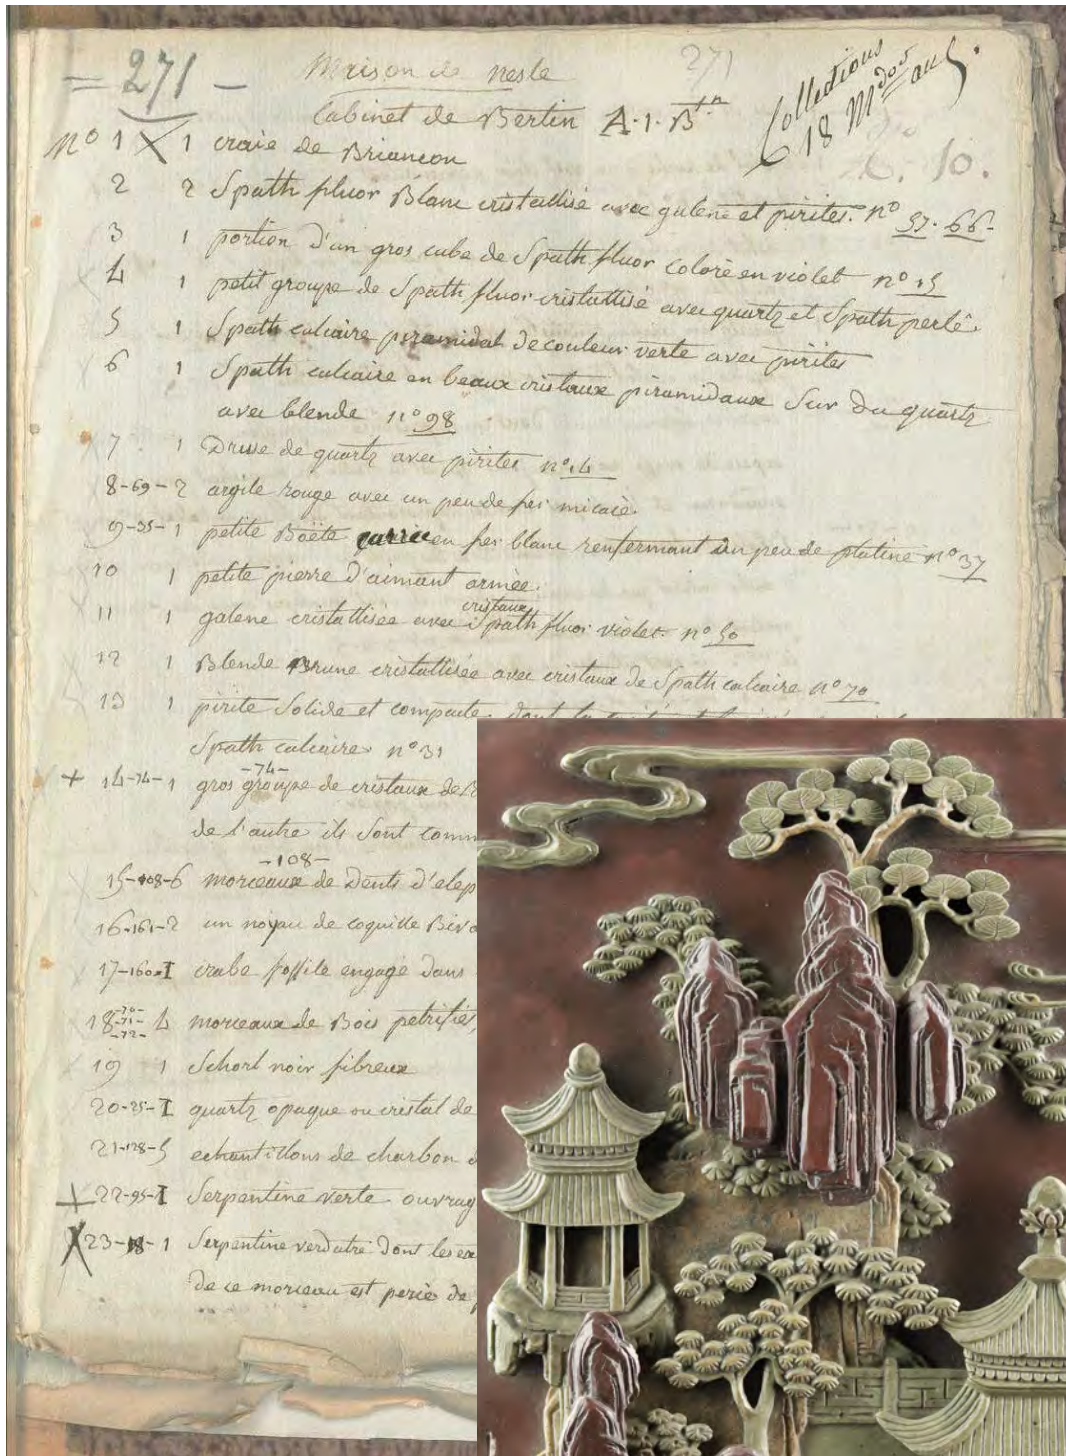 = 271 —
271
Maison de nesle
Collections
18 M
Cabinet de Bertin A.1.B.tn
6. 10.
N° 1 1 craie de Briancon
2 2 Spath fluor Blanc cristallisé avec galene et pirites. n° 37. 66-
3 1 portion d'un gros cube de Spath fluor coloré en violet n° 15
4 1 petit groupe de Spath fluor cristallisé avec quartz et Spath perlé.
5 1 Spath calcaire piramidal de couleur verte avec pirites
6 1 Spath calcaire en beaux cristaux piramidaux Sur du quartz
avec blende n° 98
7 1 Druse de quartz avec pirites n° 14
8-69-2 argile rouge avec un peu de fer micacé.
9-35-1 petite Boëte carrée en fer blanc renfermant un peu de platine n° 37
10 1 petite pierre d'aimant armée.
cristaux
11 1 galene cristallisée avec Spath fluor violet. n° 50
12 1 Blende Brune cristallisée avec cristaux de Spath calcaire n° 70
13 1 pirite Solide et compacte, dont la
Spath calcaire n° 31
-74-
+ 14-74-1 gros groupe de cristaux de
de l'autre ils Sont comm
-108-
15-108-6 morceaux de Dents d'elep
16-161-2 un noyau de coquille Biva
17-160-I crabe fossile engagé dans
-70-
18-71-4 morceaux de Bois petrifiés
-72-
19 1 Schorl noir fibreux
20-25-I quartz opaque ou cristal de
21-128-5 echantillons de charbon d
22-95-1 Serpentine verte ouvrag
X 23-18-1 Serpentine verdatre dont les ex
de ce morceau est percé de